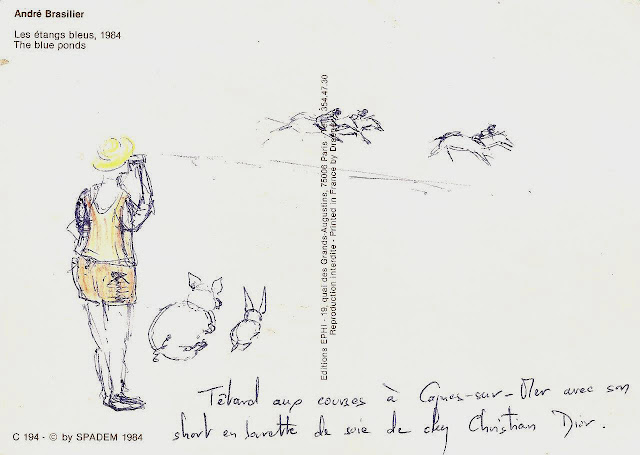 André Brasilier
Les étangs bleus, 1984
The blue ponds
Editions EPHI - 19, quai des Grands-Augustins, 75006 Paris 354.47.30
Reproduction interdite - Printed in France by
Têtard aux courses à Cagnes-sur-Mer avec son
short en bourette de soie de chez Christian Dior.
C 194 - © by SPADEM 1984